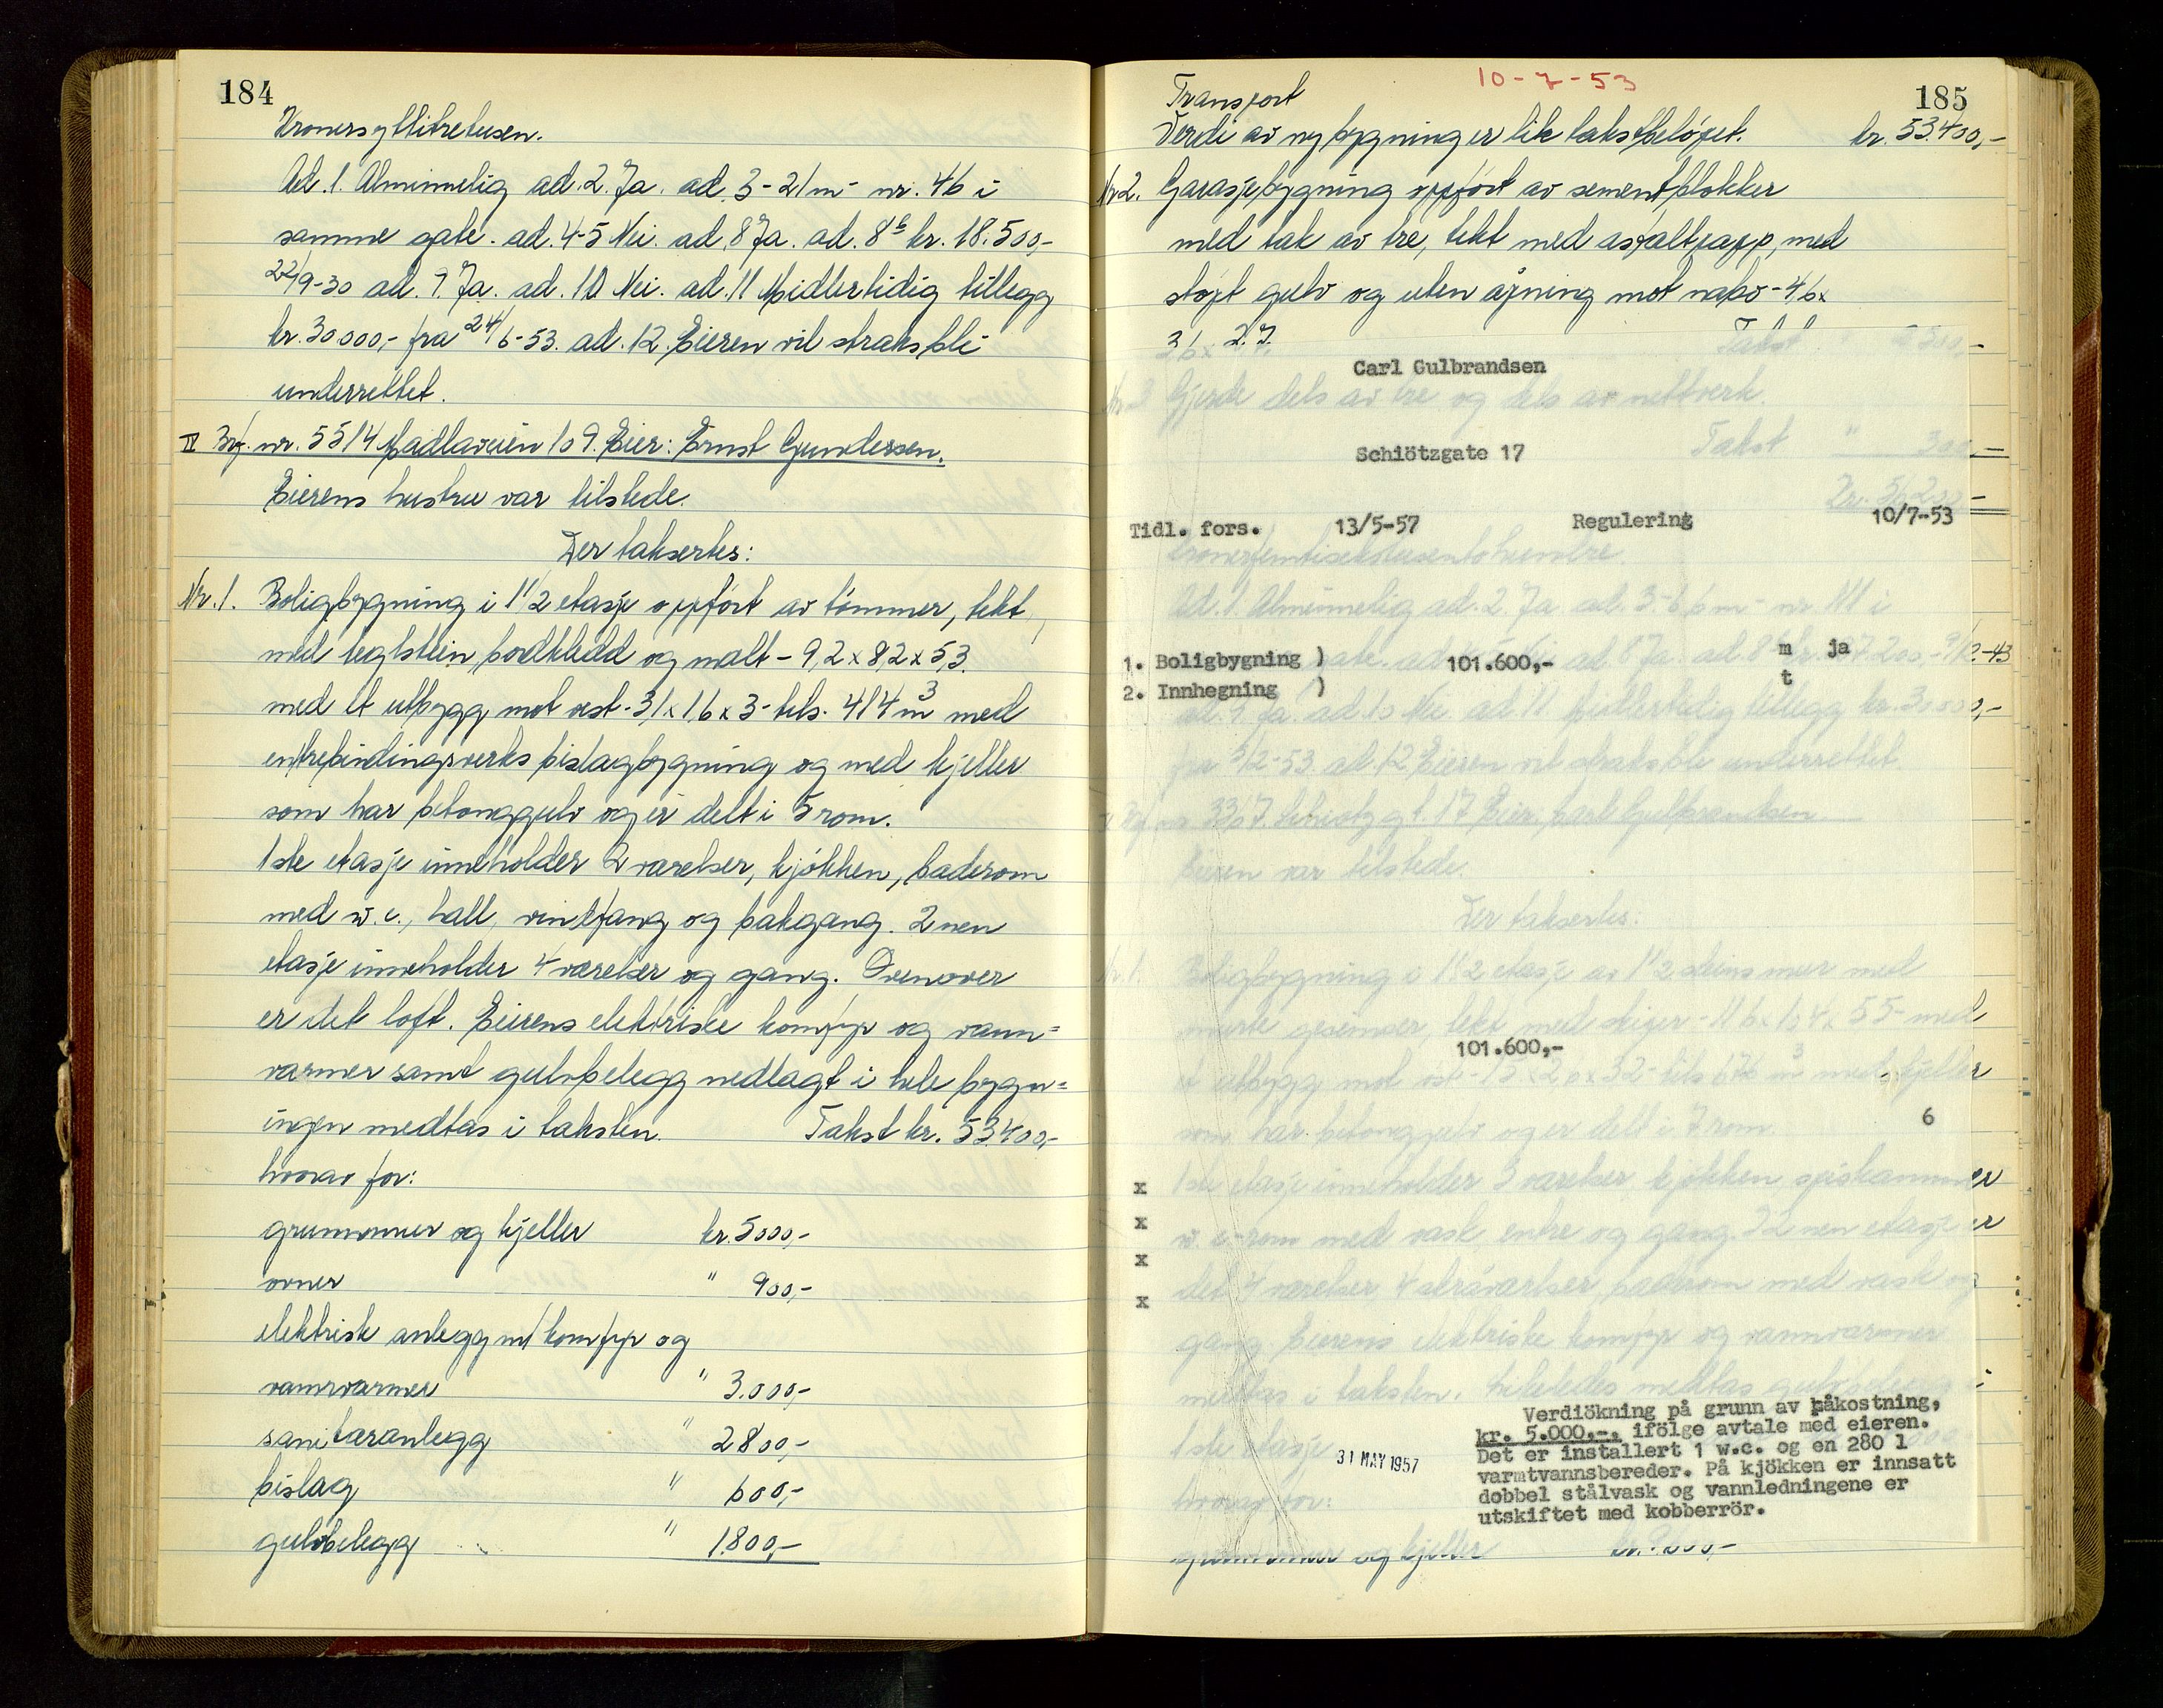 184
Kronersyttitretusen.
Ad. 1. Alminnelig ad. 2. Ja. ad. 3 - 21 m - nr. 46 i
samme gate. ad. 4-5 Nei. ad. 8 Ja. ad. 8b kr. 18.500,-
22/9-30 ad. 9. Ja. ad. 10 Nei. ad. 11 Midlertidig tillegg
kr. 30000,- fra 24/6-53. ad. 12. Eieren vil straks bli
underrettet.
II Brf. nr. 5514 Madlaveien 109. Eier: Ernst Gundersen.
Eierens hustru var tilstede.
Der taksertes:
Nr. 1. Boligbygning i 1 1/2 etasje oppført av tømmer, tekt
med teglstein, bordkledd og malt - 9,2 x 8,2 x 5,3.
med et utbygg mot vest - 3,1 x 1,6 x 3 - tils. 414 m3 med
enkebindingsverks bislagbygning og med kjeller
som har betonggulv og er delt i 5 rom.
1ste etasje inneholder 2 værelser, kjøkken, baderom
med w.c., hall, vindfang og bakgang. 2nen
etasje inneholder 4 værelser og gang. Ovenover
er det loft. Eierens elektriske komfyr og vann=
varmer samt gulvbelegg nedlagt i hele bygn=
ingen medtas i taksten. Takst kr. 53.400,-
hvorav for:
grunnmur og kjeller kr. 5000,-
ovner " 900,-
elektrisk anlegg m/komfyr og
vannvarmer " 3.000,-
sanitæranlegg " 2800,-
bislag " 600,-
gulvbelegg " 1800,-
10-7-53
185
Transport
Verdi av ny bygning er lik takstbeløpet. kr. 53.400,-
Nr. 2. Garasjebygning oppført av sementblokker
med tak av tre, tekt med asfaltpapp, med
støpt gulv og uten åpning mot nabo - 4,6 x
3,6 x 2,7. Takst
Carl Gulbrandsen
Nr. 3 Gjerde dels av tre og dels av nettverk.
Schiötzgate 17
Takst " 300,-
Kr. 56.200,-
Tidl. fors. 13/5-57 Regulering 10/7-53
kronerfemtisekstusentohundre
Ad. 1. Alminnelig ad. 2. Ja ad. 3. - 6,6 m - nr. 111 i
1. Boligbygning ) 101.600,- m ja
2. Innhegning ) t
ad. 9 Ja. ad. 10 Nei. ad. 11 Midlertidig tillegg kr.
53 ad. 12 Eieren vil straks bli underrettet.
Schiötz gt. 17 Eier: Carl Gulbrandsen
Eieren var tilstede.
Der taksertes:
Nr. 1. Boligbygning i 1 1/2 etasje av 1 1/2 steins mur med
murte gesimser, tekt med skifer - 11,6 x 10,4 x 5,5 - med
101.600,-
et utbygg mot med kjeller
6
som har betonggulv og er delt i 7 rom.
x 1ste etasje inneholder 3 værelser, kjøkken, spiskammer
x w.c.-rom med vask, entre og gang. I 2nen etasje er
x det 4 værelser, 4 skråværelser, baderom med vask og
x
gang. Eierens elektriske komfyr og vannvarmer
medtas i taksten. Likeledes medtas gulvbelegg i
Verdiökning på grunn av påkostning,
kr. 5.000,-, ifölge avtale med eieren.
Det er installert 1 w.c. og en 280 l
varmtvannsbereder. På kjökken er innsatt
dobbel stålvask og vannledningene er
utskiftet med kobberrör.
1ste etasje
31 MAY 1957
hvorav for:
grunnmur og kjeller